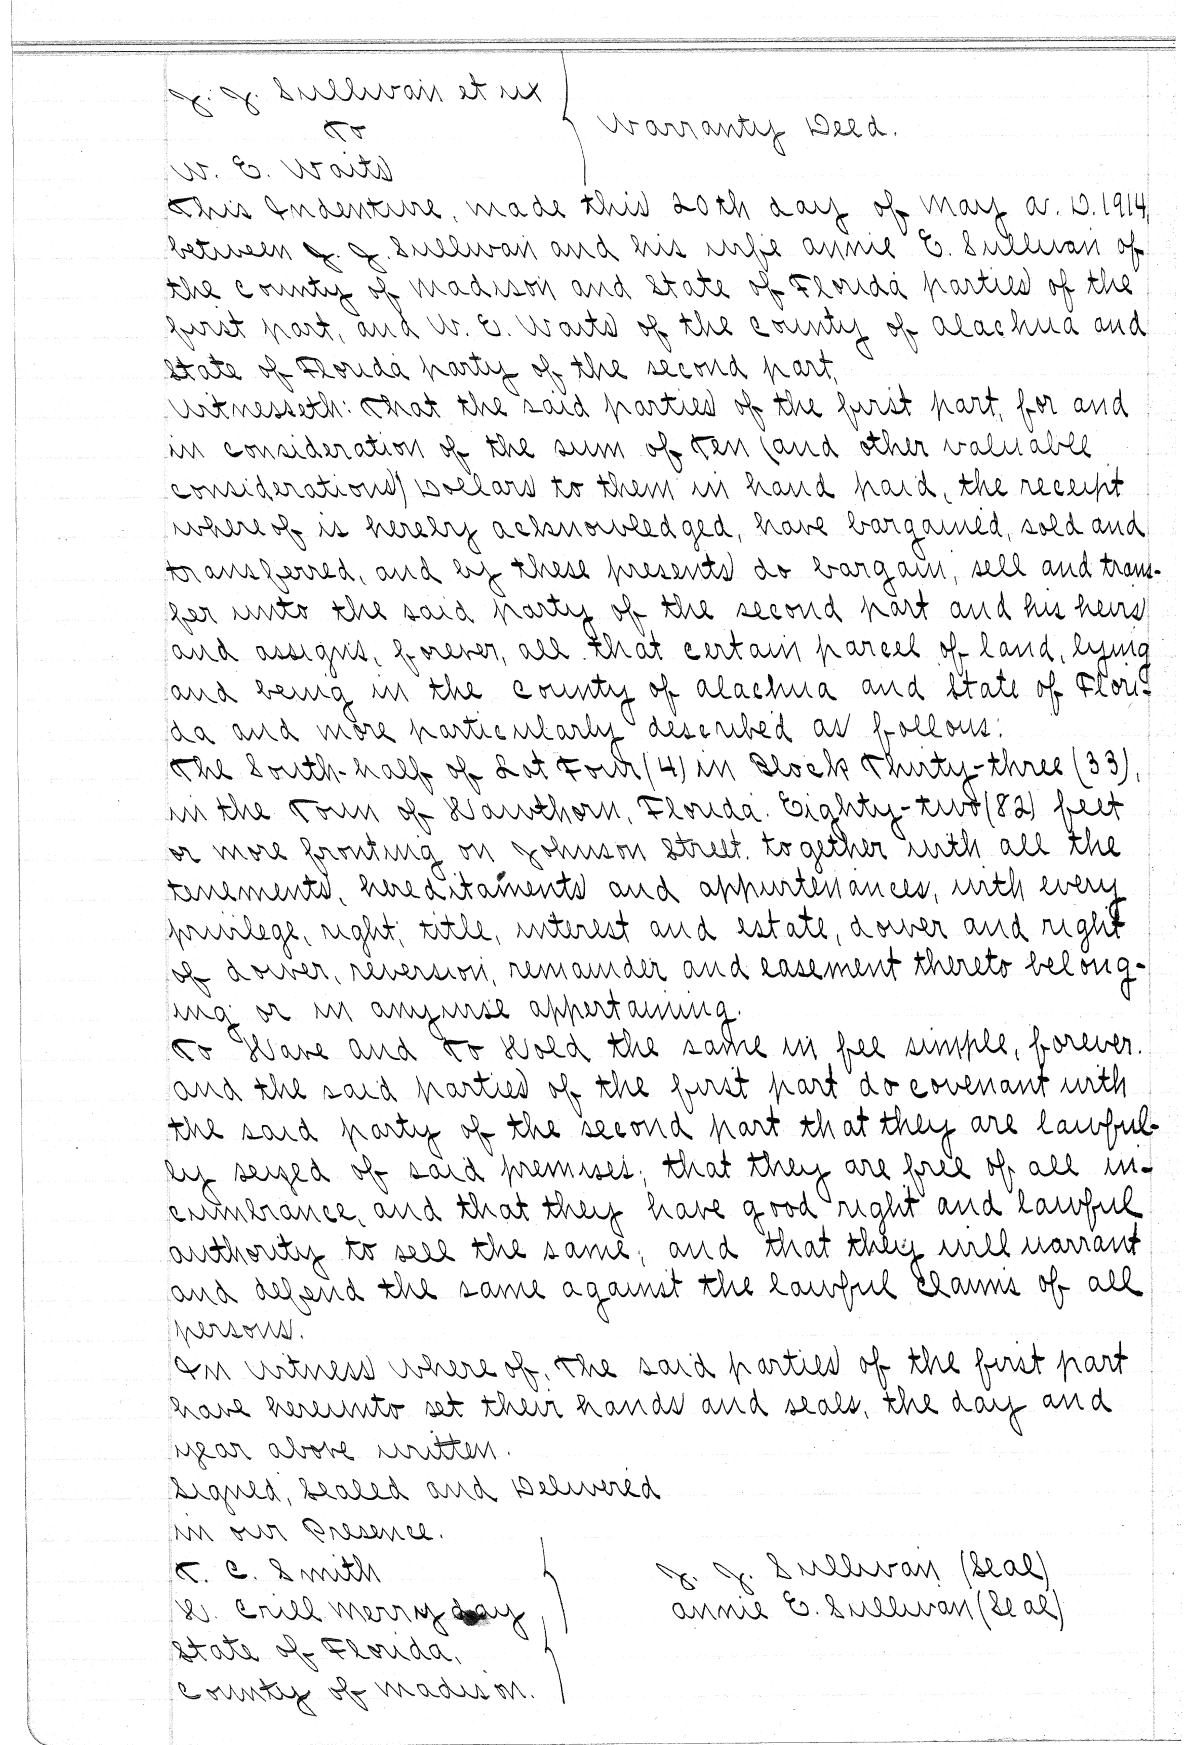 J. J. Sullivan et ux
To
Warranty Deed.
W. E. Waits
This Indenture, made this 20th day of May A. D. 1914,
between J. J. Sullivan and his wife Annie E. Sullivan of
the County of Madison and State of Florida parties of the
first part, and W. E. Waits of the County of Alachua and
State of Florida party of the second part,
Witnesseth: That the said parties of the first part, for and
in consideration of the sum of Ten (and other valuable
considerations) Dollars to them in hand paid, the receipt
where of is hereby acknowledged, have bargained, sold and
transferred, and by these presents do bargain, sell and trans-
fer unto the said party of the second part and his heirs
and assigns, forever, all that certain parcel of land, lying
and being in the County of Alachua and State of Flori-
da and more particularly described as follows:
The South-half of Lot Four (4) in Block Thirty-three (33),
in the Town of Hawthorn, Florida. Eighty-two (82) feet
or more fronting on Johnson Street. together with all the
tenements, hereditaments and appurtenances, with every
privilege, right, title, interest and estate, dower and right
of dower, reversion, remainder and easement thereto belong-
ing or in anywise appertaining.
To Have and To Hold the same in fee simple, forever.
And the said parties of the first part do covenant with
the said party of the second part that they are lawful-
ly seized of said premises; that they are free of all in-
cumbrance, and that they have good right and lawful
authority to sell the same; and that they will warrant
and defend the same against the lawful claims of all
persons.
In Witness where of, The said parties of the first part
have hereunto set their hands and seals, the day and
year above written.
Signed, Sealed and Delivered
in our Presence.
T. C. Smith
J. J. Sullivan (Seal)
H. Crill Merryday
Annie E. Sullivan (Seal)
State of Florida,
County of Madison.